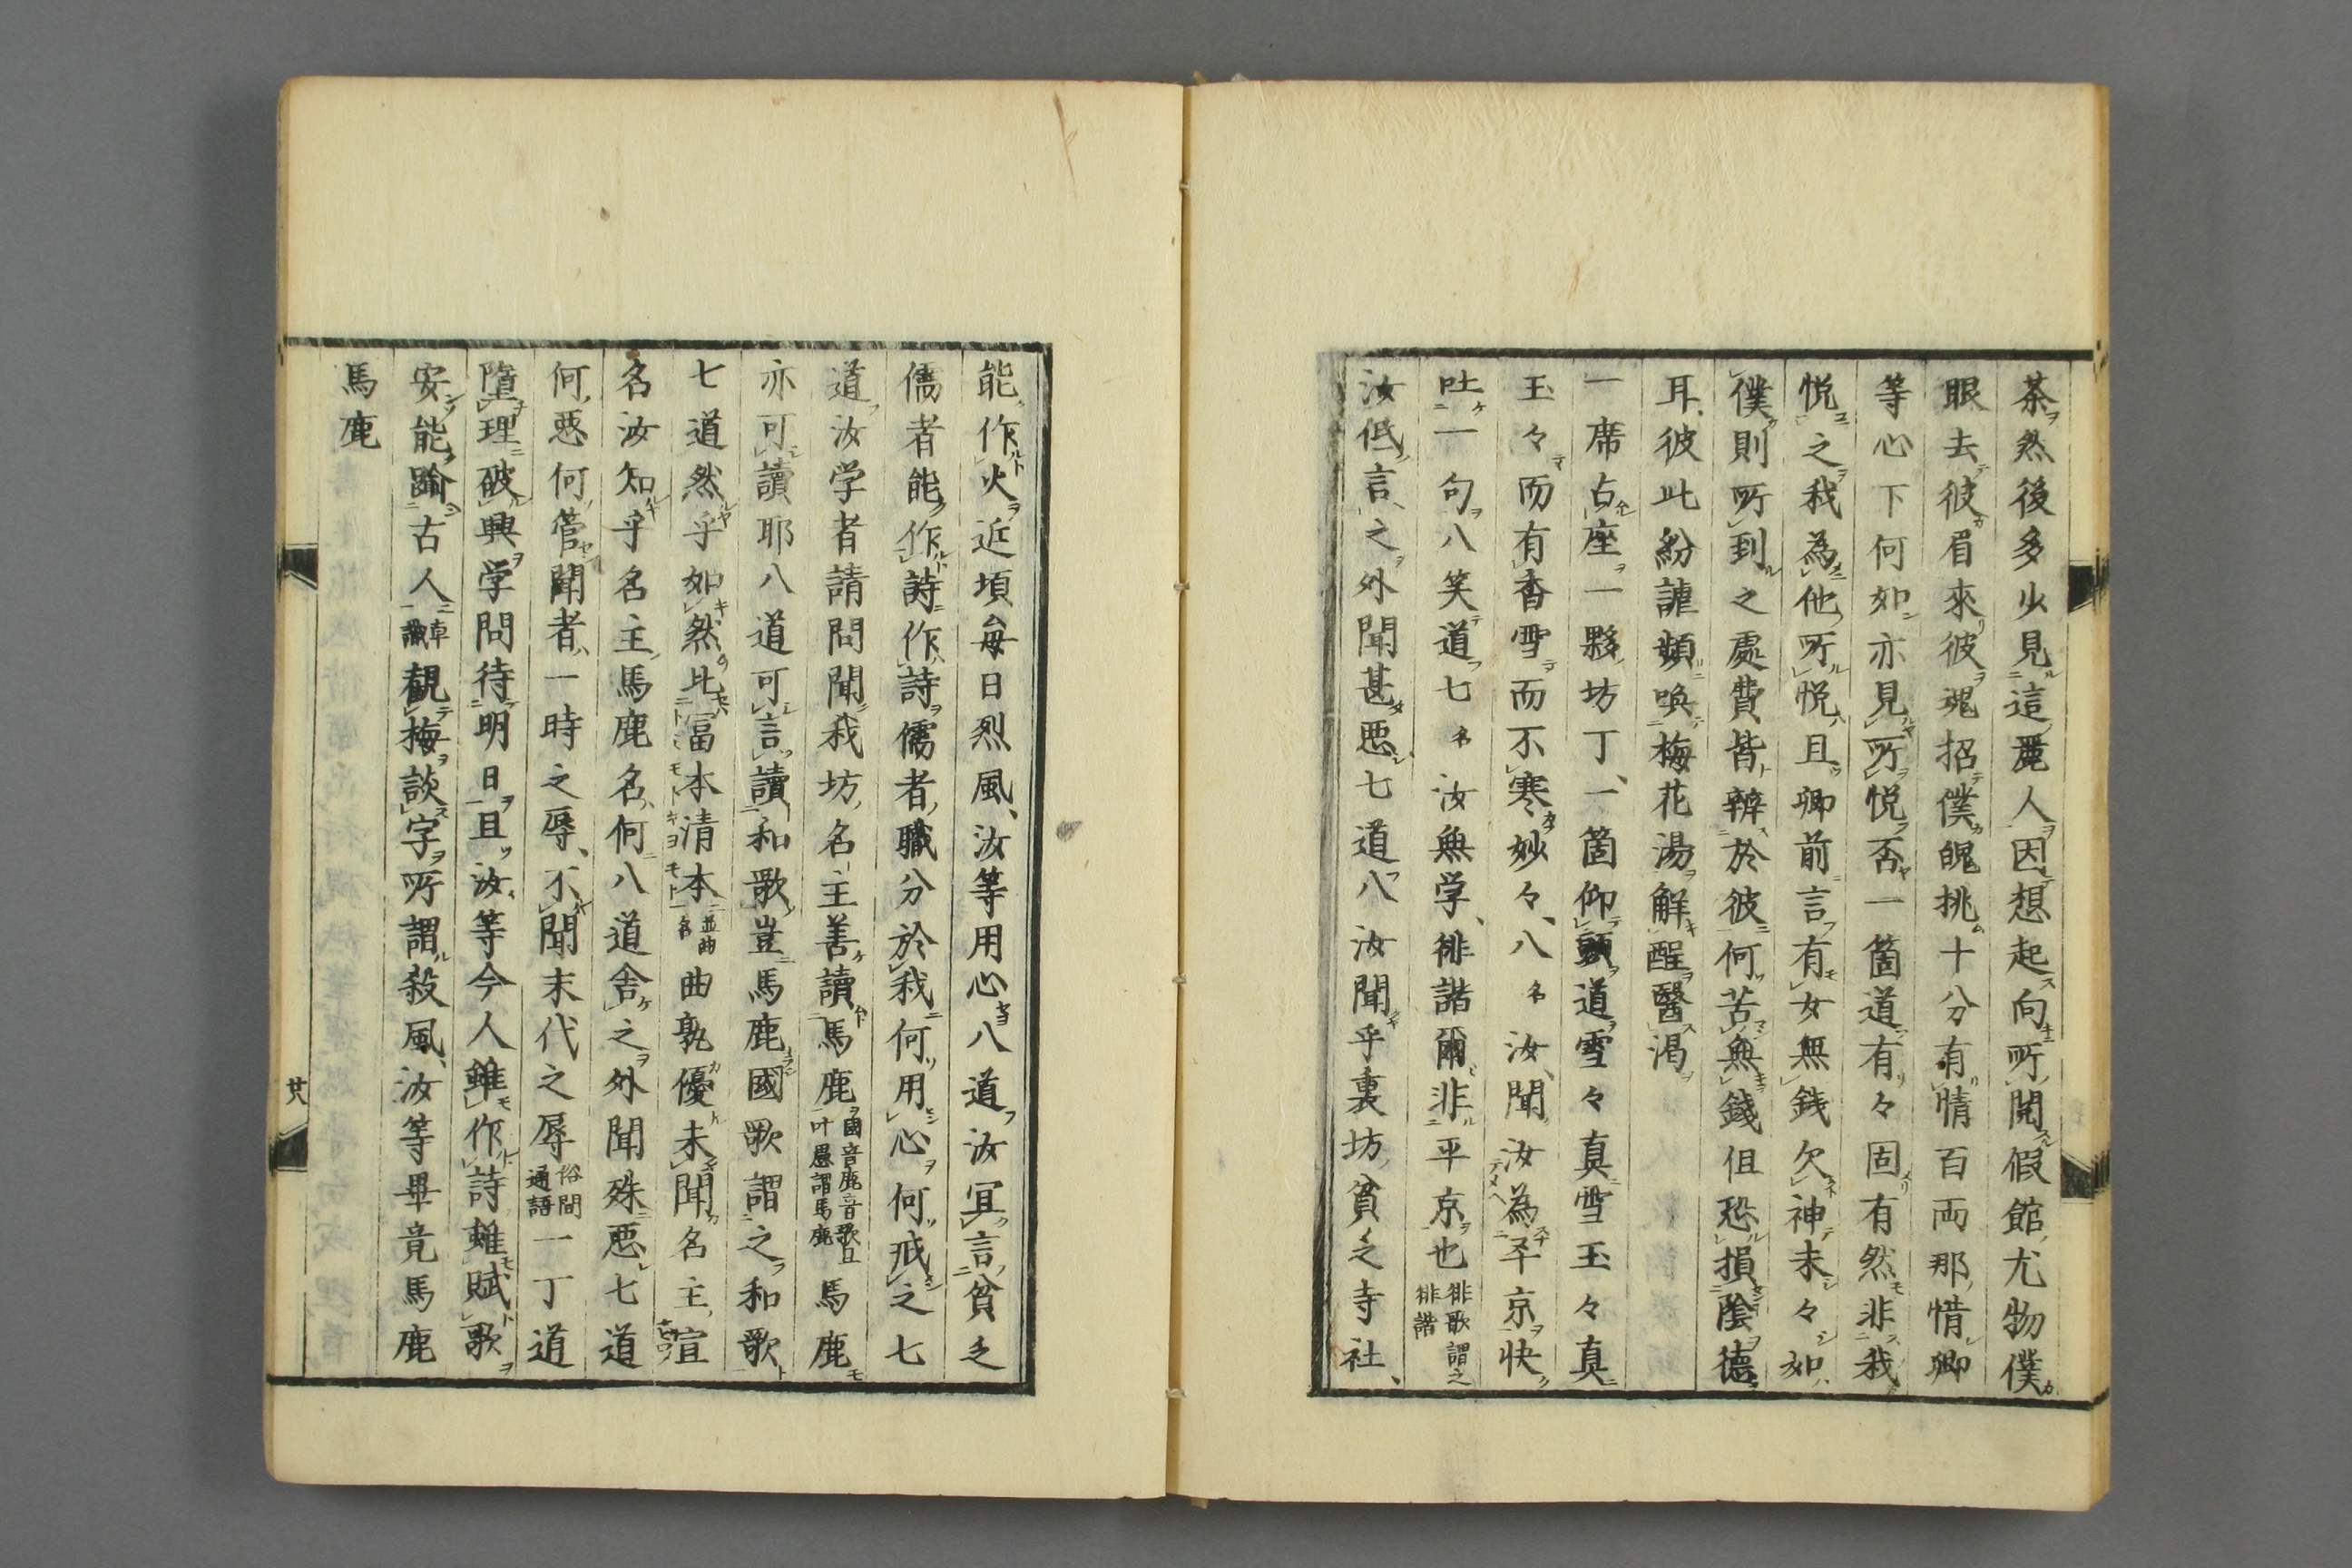 茶然後多少見這麗人因想起向所閲假館尤物僕
眼去彼眉來彼魂招僕魄挑十分有情百両那惜卿
等心下何如亦見所悦否一箇道有々固有然非我
悦之我為他所悦且卿前言有女無銭欠神未々如
僕則所到之處費皆辨於彼何苦無錢但恐損陰德
耳彼此紛謔頻喚梅花湯解酲醫渇
一席占座一夥坊丁一箇仰頭道雪々真雪玉々真
玉々而有香雪而不寒妙々八名汝聞汝為平京快
吐一句八笑道七名汝無学俳諧爾非平京也俳歌謂之俳諧
汝低言之外聞甚悪七道八汝聞乎裏坊貧乏寺社
能作火近頃毎日烈風汝等用心八道汝冝言貧乏
儒者能作詩作詩儒者職分於我何用心何戒之七
道汝学者請問聞我坊名主善讀馬鹿國音鹿音歌且叶愚謂馬鹿馬鹿
亦可讀耶八道可言讀和歌豈馬鹿國歌謂之和歌
七道然乎如然比冨本清本並曲名曲孰優未聞名主喧
名汝知乎名主馬鹿名何八道舎之外聞殊悪七道
何悪何管聞者一時之辱不聞末代之辱俗間通語一丁道
墮理破興学問待明日且汝等今人雖作詩雖賦歌
安能踰古人卓識觀梅談字所謂殺風汝等畢竟馬鹿
馬鹿
廿八